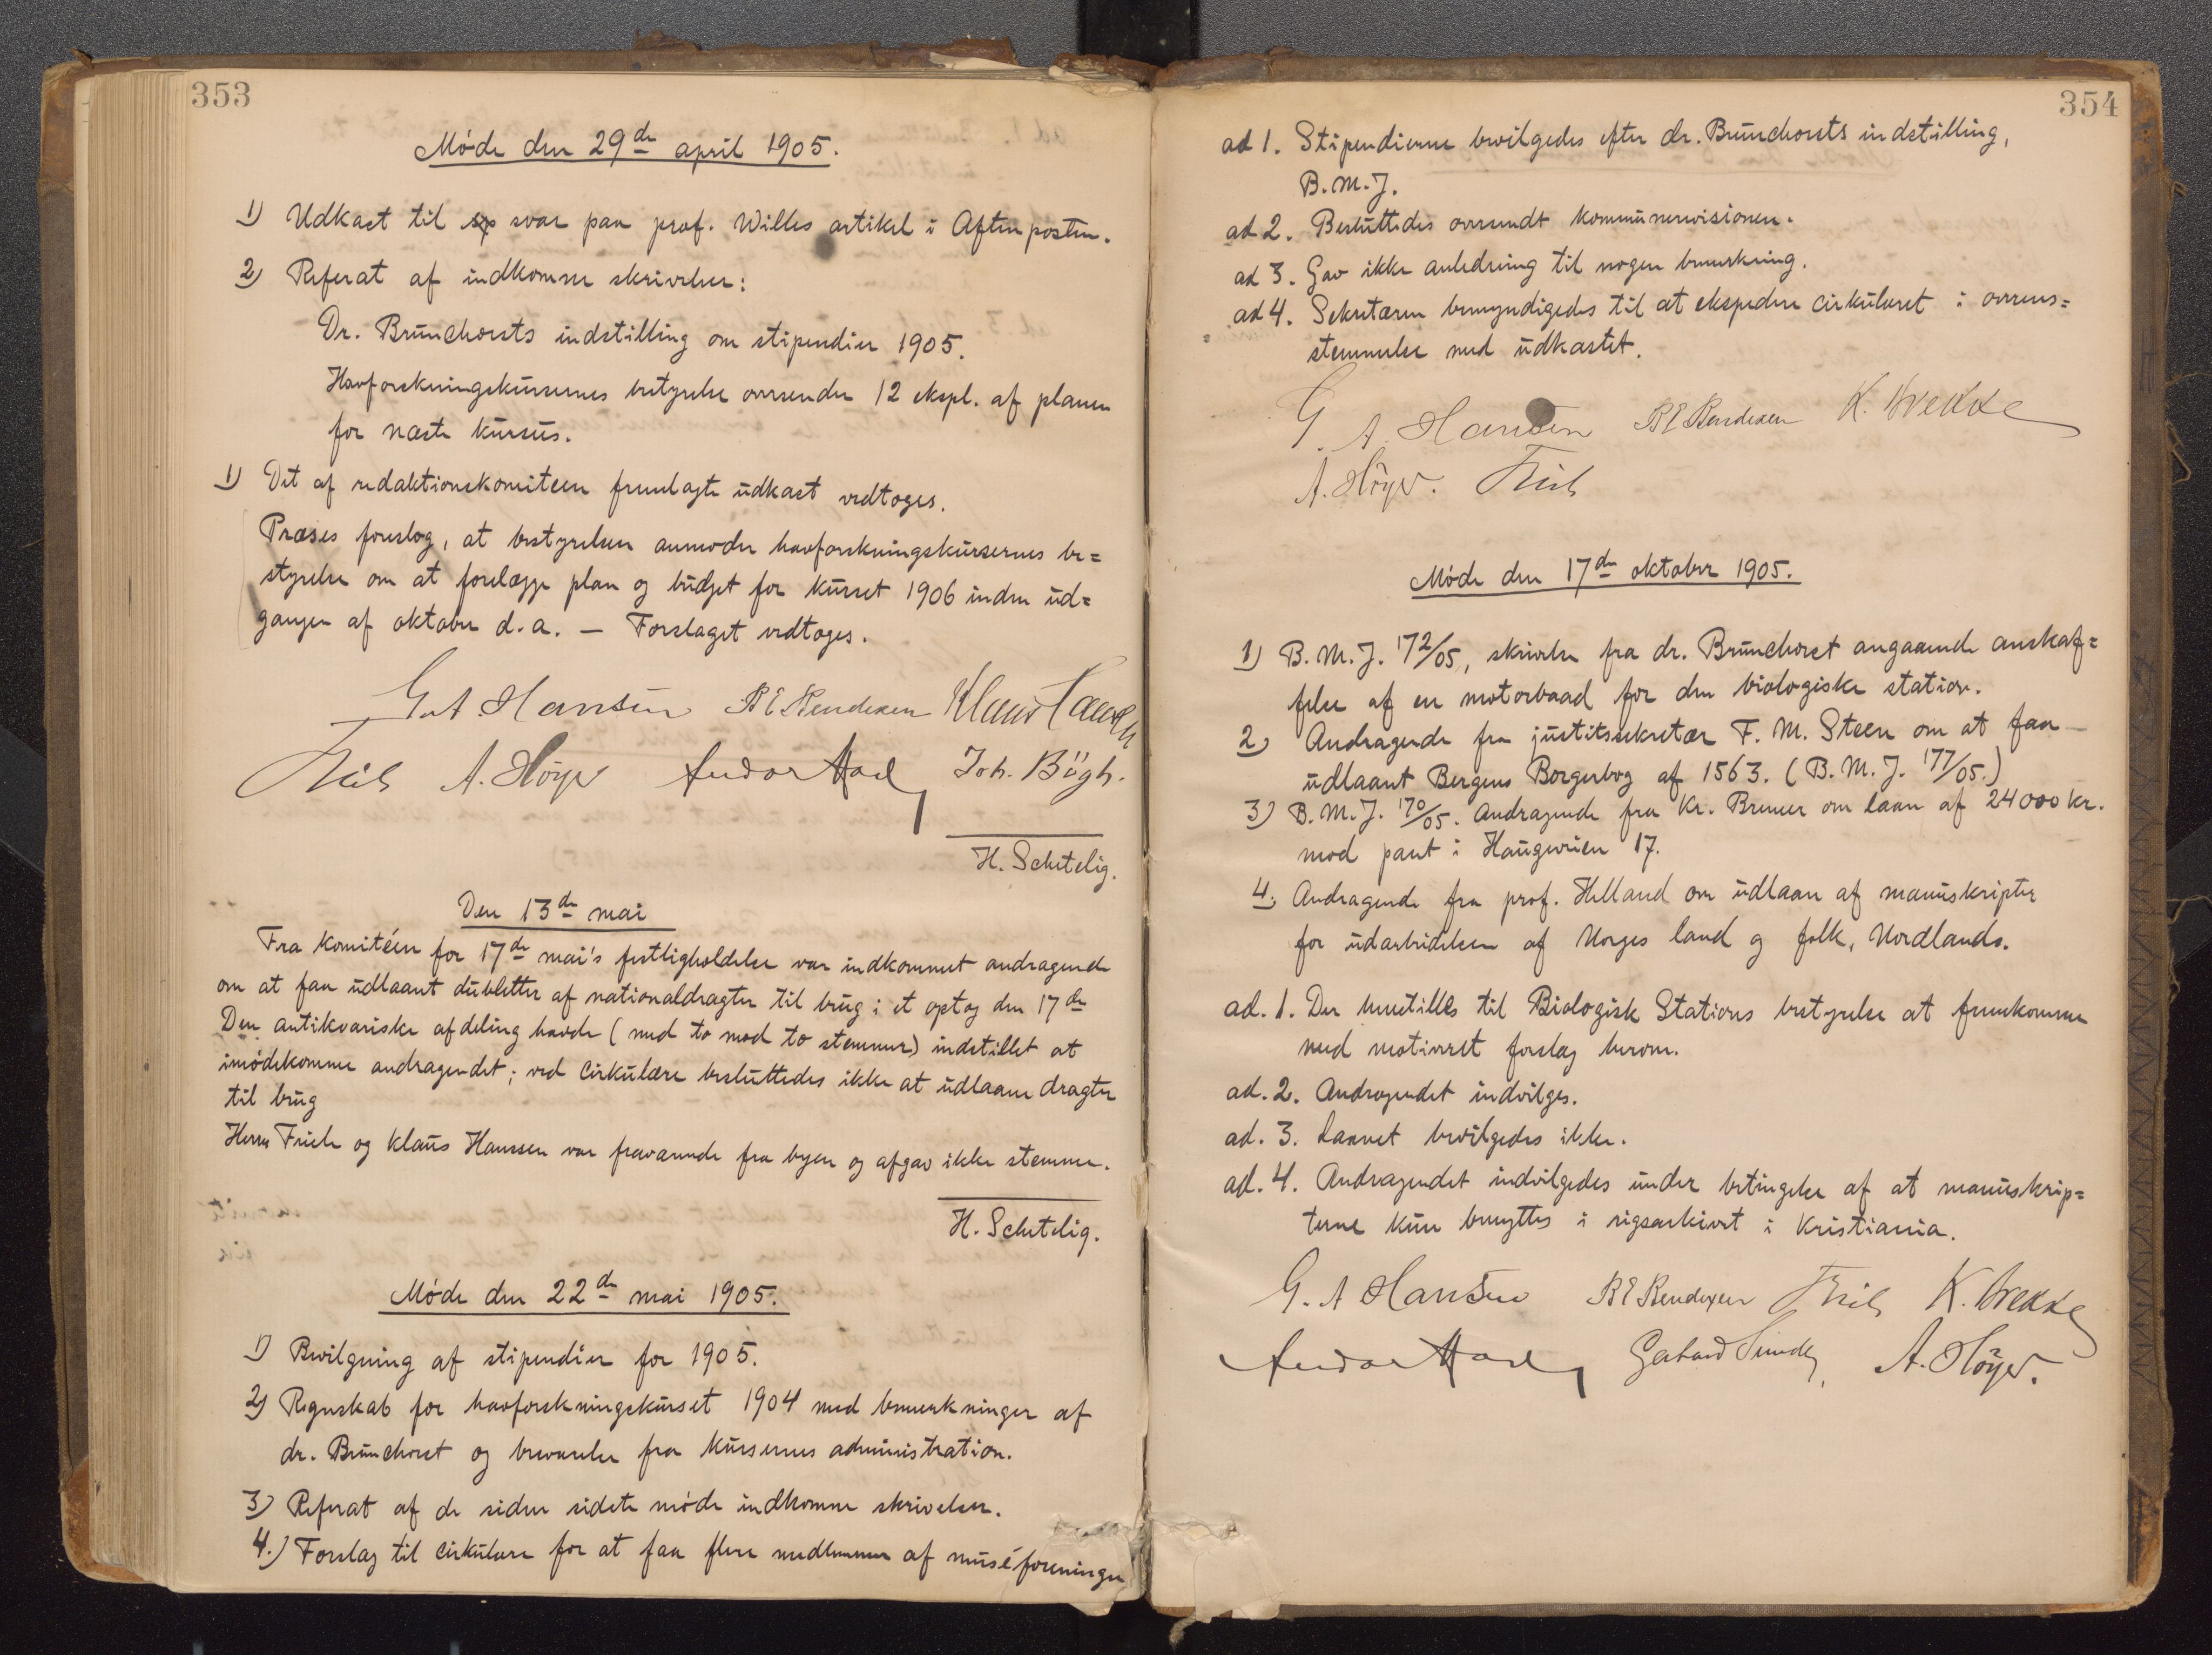 353
Møde den 29de april 1905.
1) Udkast til svar paa prof. Willes artikel i Aftenposten.
2) Referat af indkomne skrivelser:
Dr. Brunchorsts indstilling om stipendier 1905.
Havforskningskursernes bestyrelse oversender 12 ekspl. af planen
for næste kursus.
1) Det af redaktionskomiteen fremlagte udkast vedtoges.
Præses foreslog, at bestyrelsen anmoder havforskningskursernes be=
styrelse om at forelægge plan og budget for kurset 1906 inden ud=
gangen af oktober d.a. — Forslaget vedtoges.
G. A. Hansen B E Bendixen Klaus Hanssen
Friele A. Höyer Joh. Bögh.
H. Schetelig.
Den 13de mai
Fra komitéen for 17de mai's festligholdelse var indkommet andragende
om at faa udlaant dubletter af nationaldragter til brug i et optog den 17de
Den antikvariske afdeling havde (med to mod to stemmer) indstillet at
imødekomme andragendet; ved cirkulære besluttedes ikke at udlaane dragter
til brug
Herrer Friele og Klaus Hanssen var fraværende fra byen og afgav ikke stemme.
H. Schetelig.
Møde den 22de mai 1905.
1) Bevilgning af stipendier for 1905.
2) Regnskab for havforskningskurset 1904 med bemerkninger af
dr. Brunchorst og besvarelse fra kursernes administration.
3) Referat af de siden sidste møde indkomne skrivelser.
4.) Forslag til cirkulære for at faa flere medlemmer af muséforeningen
354
ad 1. Stipendierne bevilgedes efter dr. Brunchorsts indstilling,
B.M.J.
ad 2. Besluttedes oversendt kommunerevisionen.
ad 3. Gav ikke anledning til nogen bemerkning.
ad 4. Sekretæren bemyndigedes til at ekspedere cirkulæret i overens=
stemmelse med udkastet.
G. A. Hansen B E Bendixen K. Brekke
A. Höyer. Friele
Møde den 17de oktober 1905.
1) B.M.J. 172/05, skrivelse fra dr. Brunchorst angaaende anskaf=
felse af en motorbaad for den biologiske station.
2) Andragende fra justitssekretær F. M. Steen om at faa
udlaant Bergens Borgerbog af 1563. (B.M.J. 177/05.)
3) B.M.J. 170/05. Andragende fra Kr. Bremer om laan af 24000 kr.
mod pant i Haugeveien 17.
4. Andragende fra prof. Helland om udlaan af manuskripter
for udarbeidelsen af Norges land og folk, Nordlands.
ad. 1. Der henstilles til Biologisk Stations bestyrelse at fremkomme
med motiveret forslag herom.
ad. 2. Andragendet indvilges.
ad. 3. Laanet bevilgedes ikke.
ad. 4. Andragendet indvilgedes under betingelse af at manuskrip=
terne kun benyttes i rigsarkivet i Kristiania.
G. A Hansen B E Bendixen Friele K. Brekke
Gerhard A. Höyer.